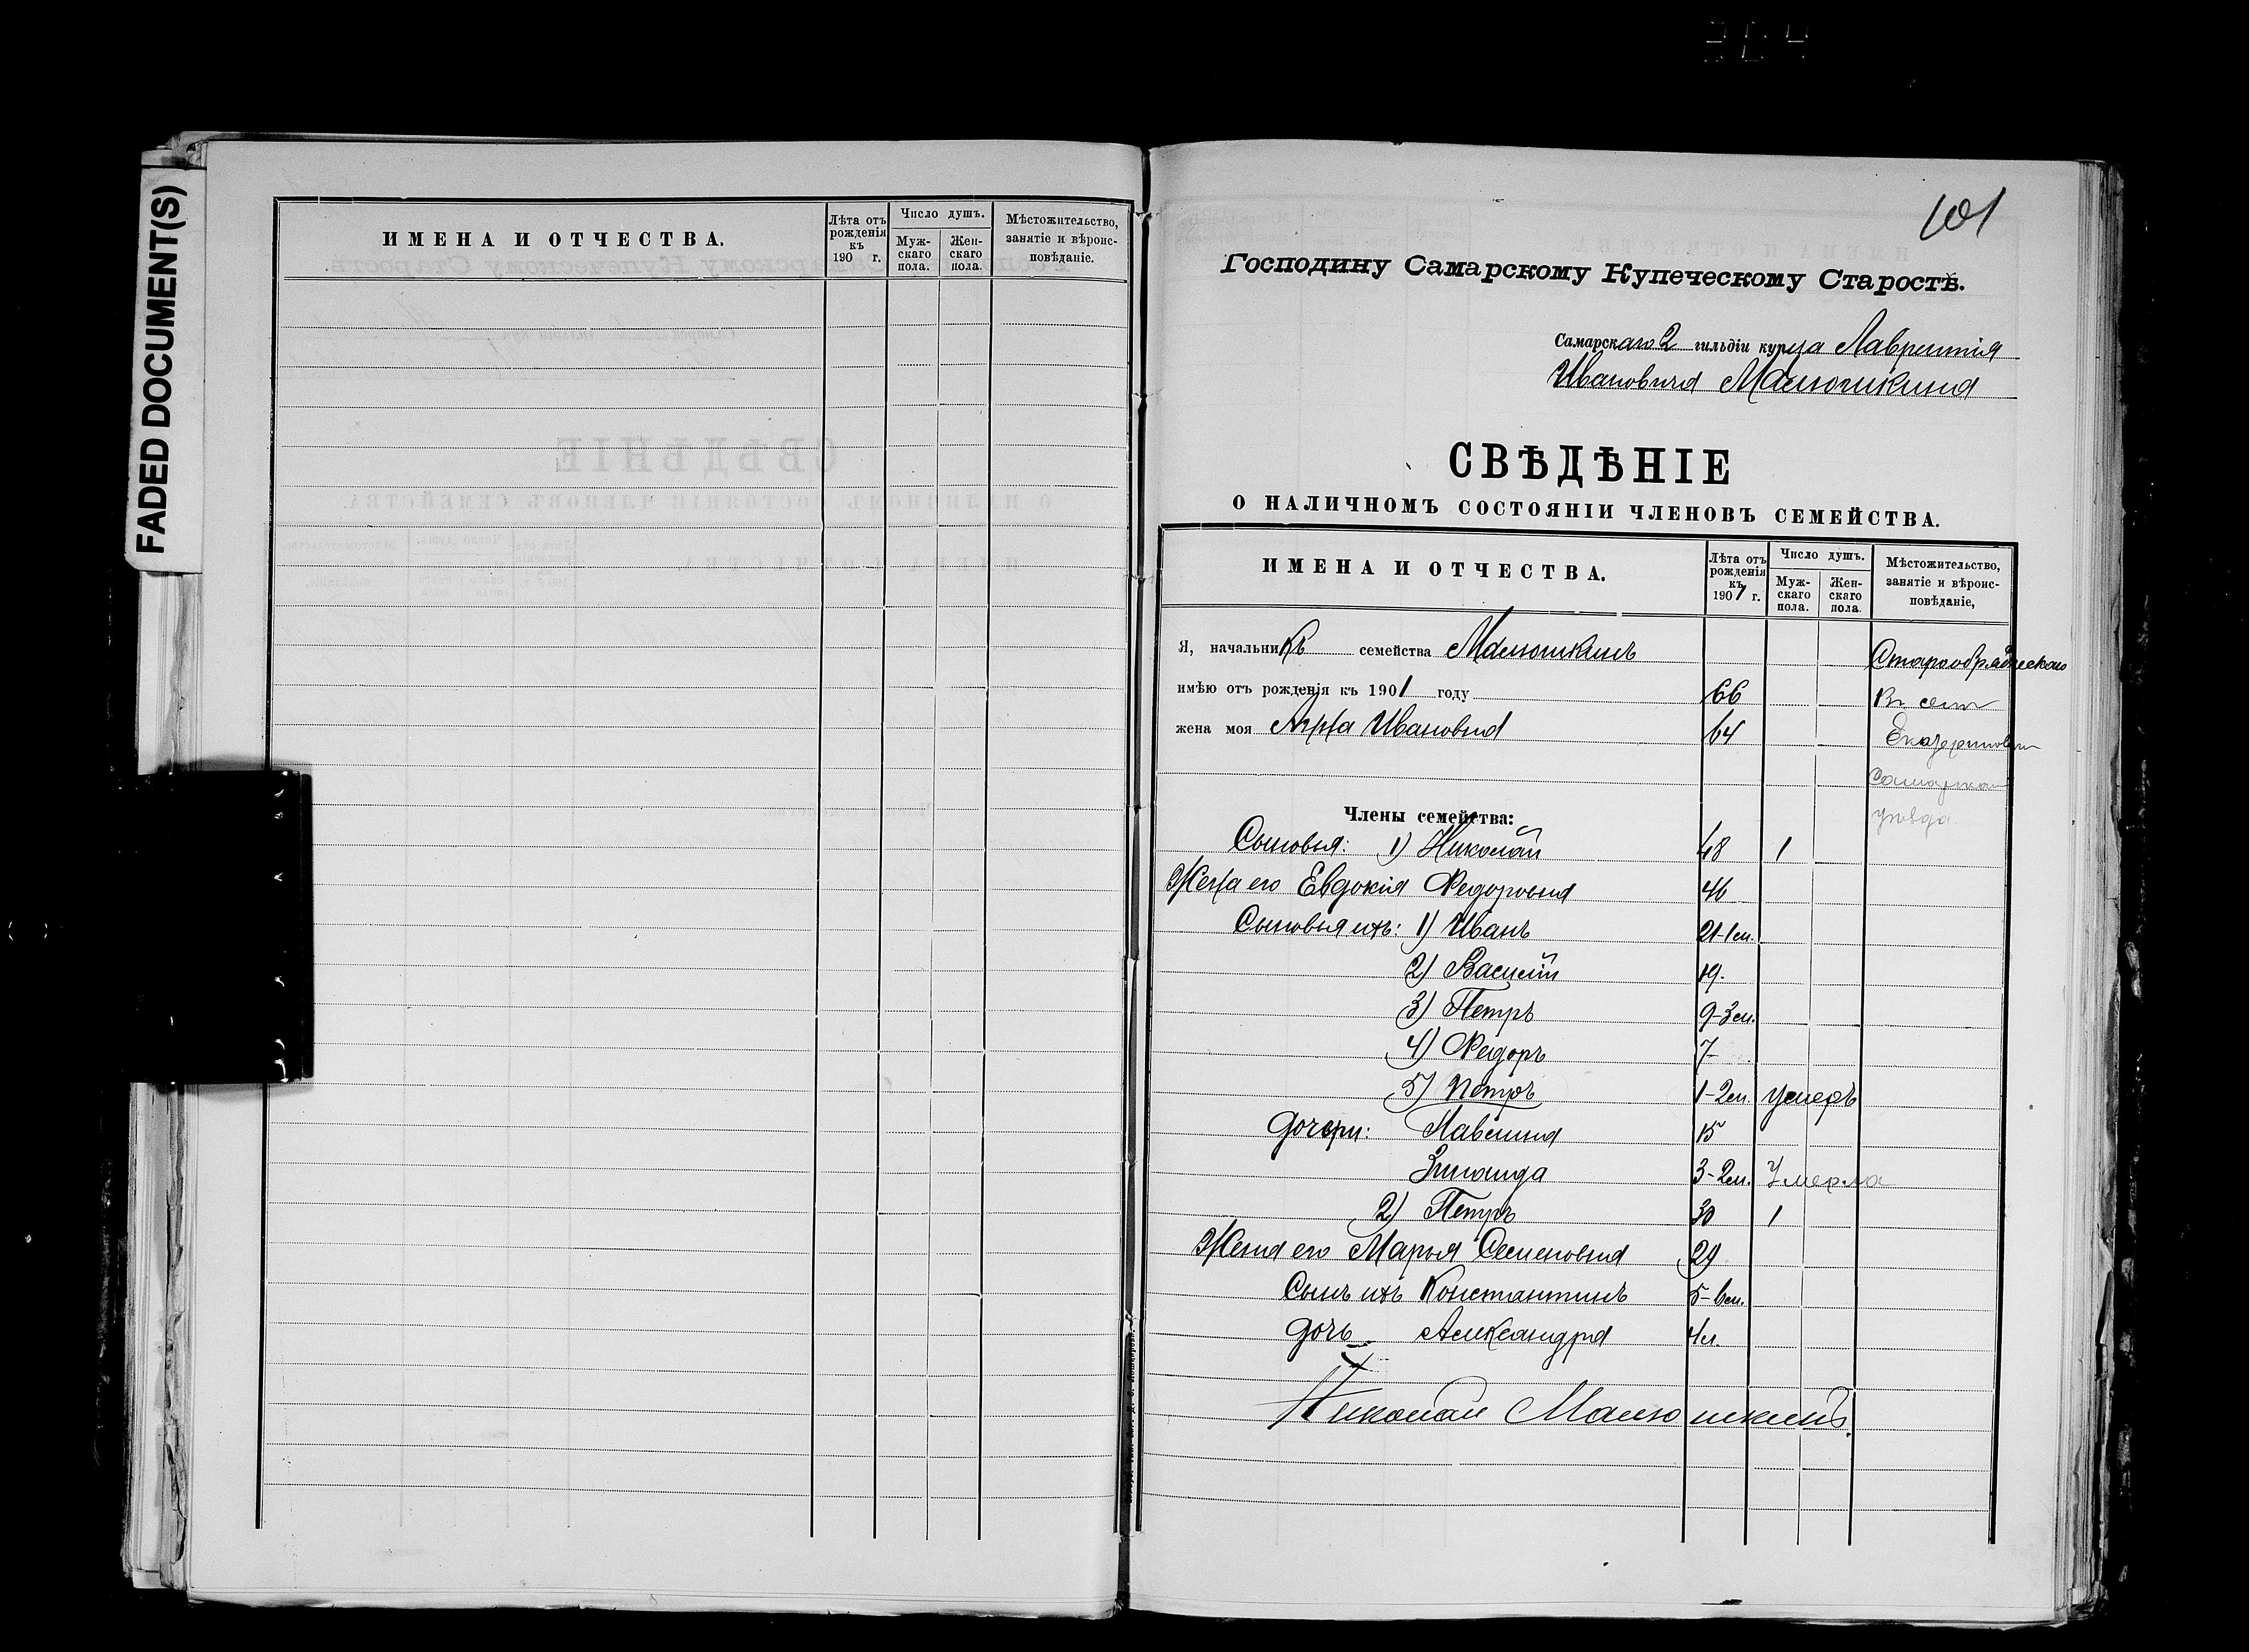 FADED DOCUMENT(S)
ИМЕНА И ОТЧЕСТВА.
Лѣта отъ рожденія къ 190 г.
Число душъ.
Мужскаго пола.
Женскаго пола.
Мѣстожительство, занятіе и вѣроисповѣданіе.
101
Господину Самарскому Купеческому Старостѣ.
Самарскаго 2 гильдіи купца Лаврентія
Ивановича Малюшкина
СВѢДѢНІЕ
О НАЛИЧНОМЪ СОСТОЯНІИ ЧЛЕНОВЪ СЕМЕЙСТВА.
ИМЕНА И ОТЧЕСТВА.
Лѣта отъ рожденія къ 1901 г.
Число душъ.
Мужскаго пола.
Женскаго пола.
Мѣстожительство, занятіе и вѣроисповѣданіе,
Я, начальникъ семейства Малюшкинъ Старообрядческаго
имѣю отъ рожденія къ 1901 году 66 Въ селѣ
жена моя Анна Ивановна 64 Екатериновкѣ
Самарскаго
уѣзда
Члены семейства:
Сыновья: 1) Николай 48 1
Жена его Евдокія Федоровна 46
Сыновья ихъ: 1) Иванъ 21-1м.
2) Василій 19.
3) Петръ 9-3м.
4) Федоръ 7-
5) Петръ 1-2м. умеръ
Дочери: 15
Зинаида 3-2м. Умерла
2) Петръ 30 1
Жена его Марья Семеновна 29
Сынъ ихъ Константинъ 5-6м.
Дочь Александра 4м.
Николай Малюшкинъ